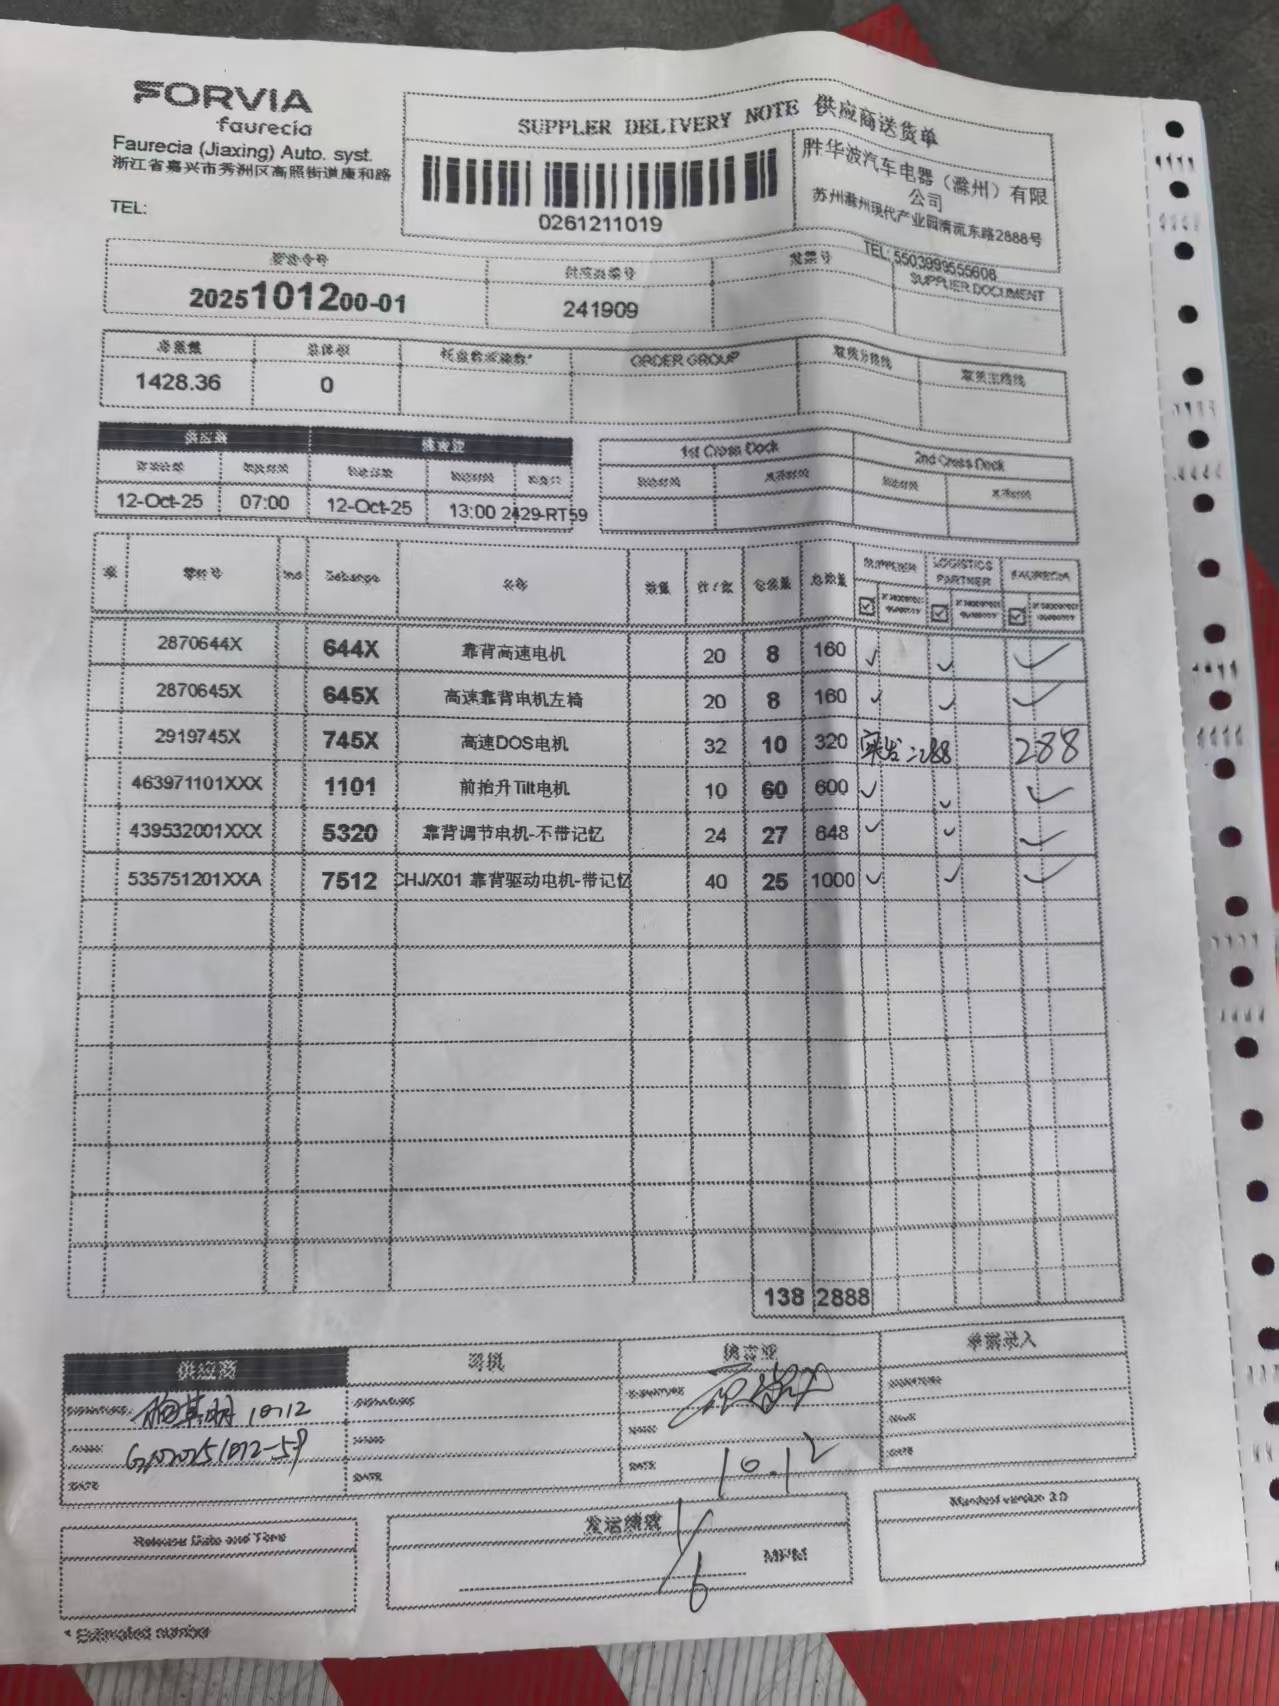 FORVIA
faurecia
Faurecia (Jiaxing) Auto. syst.
浙江省嘉兴市秀洲区高照街道康和路
TEL:
SUPPLER DELIVERY NOTE 供应商送货单
0261211019
胜华波汽车电器（滁州）有限
公司
苏州滁州现代产业园清流东路2888号
TEL: 5503999555608
供应商编号 发票号 SUPPLIER DOCUMENT
2025101200-01 241909
总重量 总体积 ORDER GROUP
1428.36 0
供应商 佛吉亚 1st Cross Dock 2nd Cross Dock
12-Oct-25 07:00 12-Oct-25 13:00 2429-RT59
零件号 Ind 名称 数量 包装量 总数量 SUPPLIER LOGISTICS PARTNER FAURECIA
2870644X 644X 靠背高速电机 20 8 160 ✓ ✓ ✓
2870645X 645X 高速靠背电机左椅 20 8 160 ✓ ✓ ✓
2919745X 745X 高速DOS电机 32 10 320 实发:288 288
463971101XXX 1101 前抬升Tilt电机 10 60 600 ✓ ✓ ✓
439532001XXX 5320 靠背调节电机-不带记忆 24 27 648 ✓ ✓ ✓
535751201XXA 7512 CHJ/X01 靠背驱动电机-带记忆 40 25 1000 ✓ ✓ ✓
138 2888
供应商 司机 佛吉亚 单据录入
SIGNATURE: 10/12 SIGNATURE SIGNATURE SIGNATURE
NAME: NAME NAME NAME
DATE DATE DATE 10.12 DATE
Release Date and Time 发运绩效 Manifest version 2.0
1/6 MPM
* Estimated number